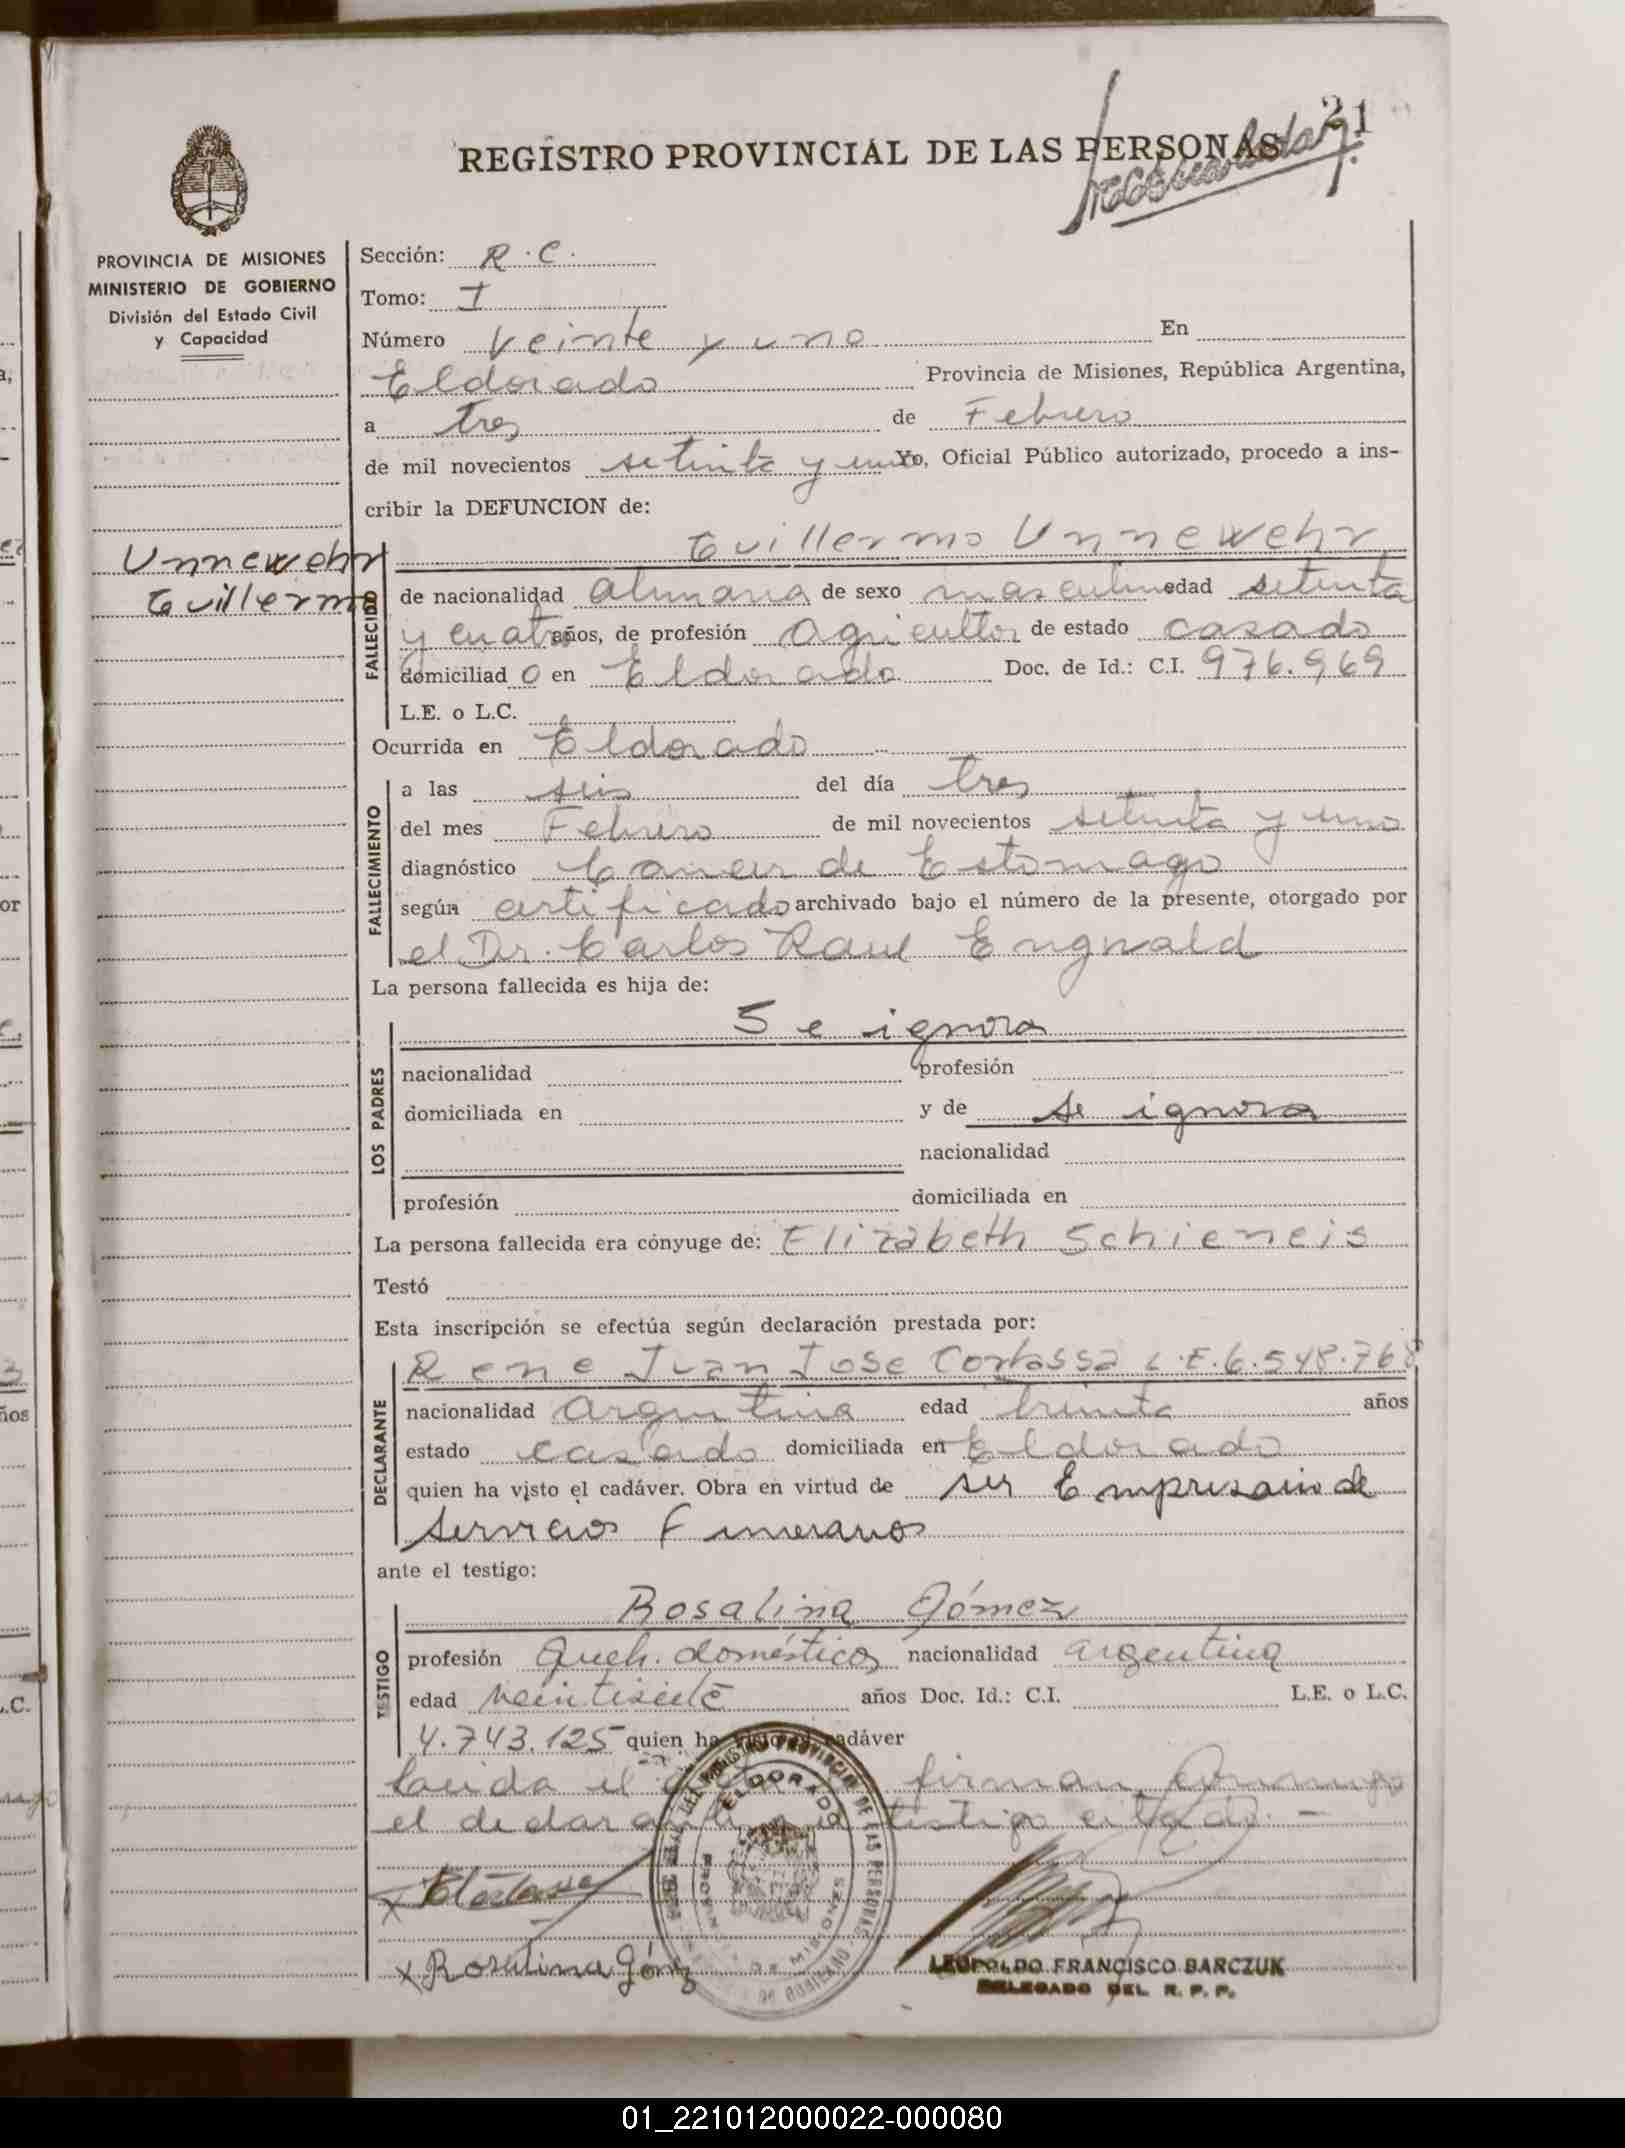 21
REGISTRO PROVINCIAL DE LAS PERSONAS
PROVINCIA DE MISIONES
MINISTERIO DE GOBIERNO
División del Estado Civil
y Capacidad
Unnewehr
Guillermo
Sección: R.C.
Tomo: I
Número Veinte y uno En
Eldorado Provincia de Misiones, República Argentina,
a tres de Febrero
de mil novecientos setenta y uno Yo, Oficial Público autorizado, procedo a ins-
cribir la DEFUNCION de:
Guillermo Unnewehr
FALLECIDO
de nacionalidad alemana de sexo masculino edad setenta
y cuatro años, de profesión agricultor de estado casado
domiciliad o en Eldorado Doc. de Id.: C.I. 976.969
L.E. o L.C.
Ocurrida en Eldorado
FALLECIMIENTO
a las seis del día tres
del mes Febrero de mil novecientos setenta y uno
diagnóstico Cancer de Estomago
según certificado archivado bajo el número de la presente, otorgado por
el Dr. Carlos Raul Engwald
La persona fallecida es hija de:
LOS PADRES
Se ignora
nacionalidad profesión
domiciliada en y de se ignora
nacionalidad
profesión domiciliada en
La persona fallecida era cónyuge de: Elizabeth Schieneis
Testó
Esta inscripción se efectúa según declaración prestada por:
DECLARANTE
Rene Juan Jose Cortassa L.E. 6.548.768
nacionalidad argentina edad treinta años
estado casado domiciliada en Eldorado
quien ha visto el cadáver. Obra en virtud de ser Empresario de
Servicios Funerarios
ante el testigo:
TESTIGO
Rosalina Gómez
profesión Queh. domésticos nacionalidad argentina
edad veintisiete años Doc. Id.: C.I. L.E. o L.C.
4.743.125 quien ha visto el cadáver
Leida el acta firman conmigo
el declarante y testigo citado.—
x Rosalina Gómez
ELDORADO
LEOPOLDO FRANCISCO BARCZUK
DELEGADO DEL R. P. P.
01_221012000022-000080